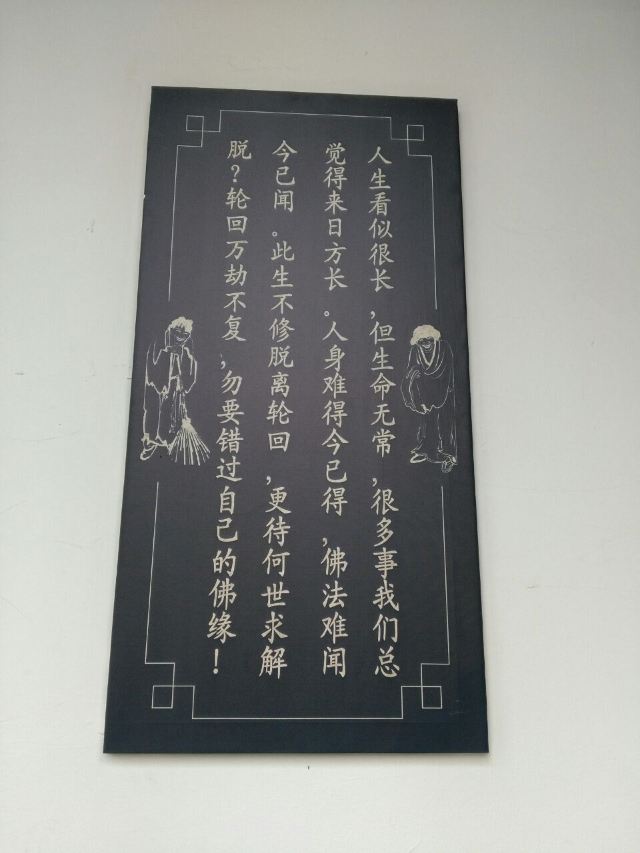 人生看似很长,但生命无常,很多事我们总
觉得来日方长。人身难得今已得,佛法难闻
今已闻。此生不修脱离轮回,更待何世求解
脱?轮回万劫不复,勿要错过自己的佛缘!